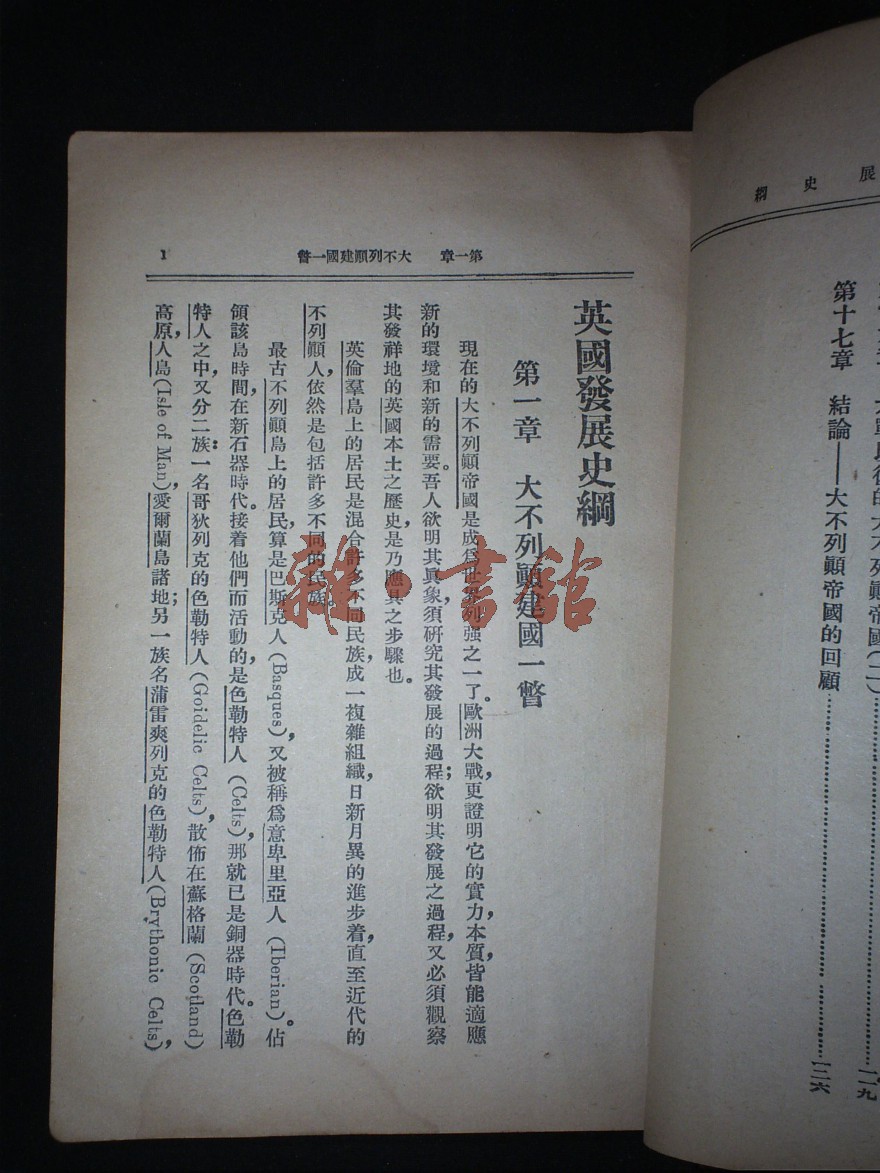 展史綱
第十七章　結論——大不列顛帝國的回顧……一二六
一一九
第一章　大不列顛建國一瞥
1
英國發展史綱
第一章　大不列顛建國一瞥
現在的大不列顛帝國是成為世界列强之一了。歐洲大戰，更證明它的實力，本質皆能適應
新的環境和新的需要。吾人欲明其眞象，須研究其發展的過程；欲明其發展之過程，又必須觀察
其發祥地的英國本土之歷史，是乃應具之步驟也。
英倫羣島上的居民是混合許多不同民族，成一複雜組織，日新月異的進步着，直至近代的
不列顛人，依然是包括許多不同的民族。
最古不列顛島上的居民，算是巴斯克人(Basques)，又被稱爲意卑里亞人(Iberian)。佔
領該島時間，在新石器時代。接着他們而活動的，是色勒特人(Celts)，那就已是銅器時代。色勒
特人之中，又分二族：一名哥狄列克的色勒特人(Goidelic Celts)，散佈在蘇格蘭(Scotland)
高原，人島(Isle of Man)，愛爾蘭島諸地；另一族名蒲雷爽列克的色勒特人(Brythonic Celts)，
雜·書館